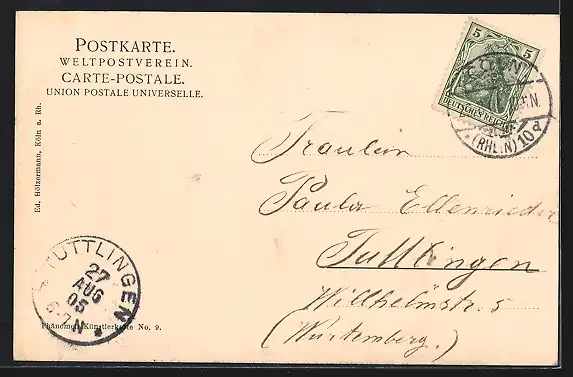 POSTKARTE.
WELTPOSTVEREIN.
CARTE-POSTALE.
UNION POSTALE UNIVERSELLE.
5 5
DEUTSCHES REICH
CÖLN
*(RHEIN) 10d
Fräulein
Paula Ellenrieder
Tuttlingen
Wilhelmstr. 5
(Württemberg.)
Ed. Hölzermann, Köln a. Rh.
TUTTLINGEN
27
AUG
05
6-7N
Phänomen-Künstlerkarte No. 9.